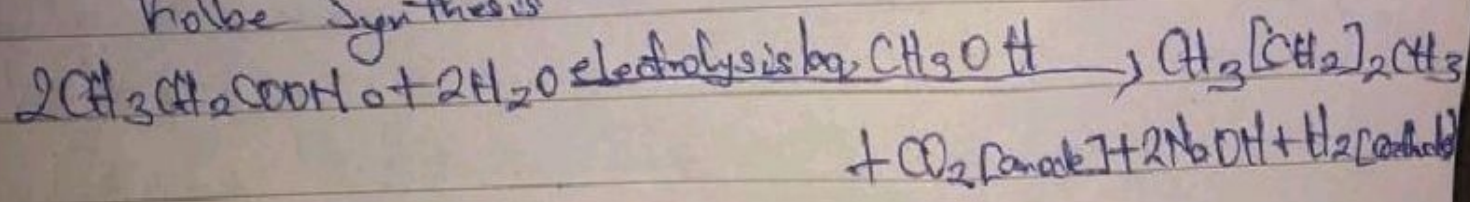 Kolbe Synthesis
2CH3CH2COONa + 2H2O electrolysis/aq, CH3OH → CH3[CH2]2CH3
+ CO2 [anode] + 2NaOH + H2 [cathode]